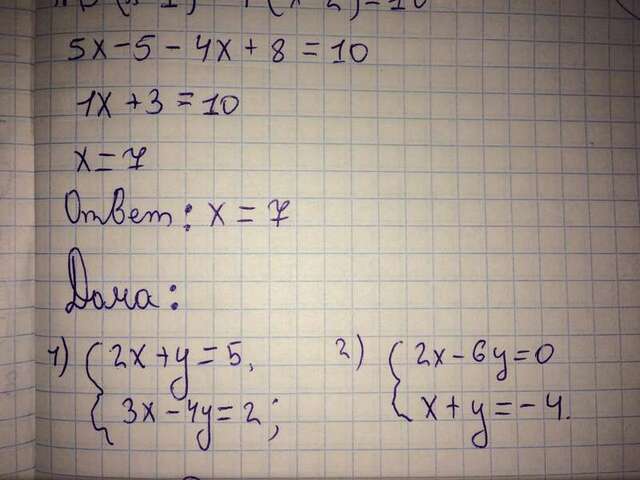 5x - 5 - 4x + 8 = 10
1x + 3 = 10
x = 7
Ответ: x = 7
Дома:
1) { 2x + y = 5,
3x - 4y = 2;
2) { 2x - 6y = 0
x + y = -4.